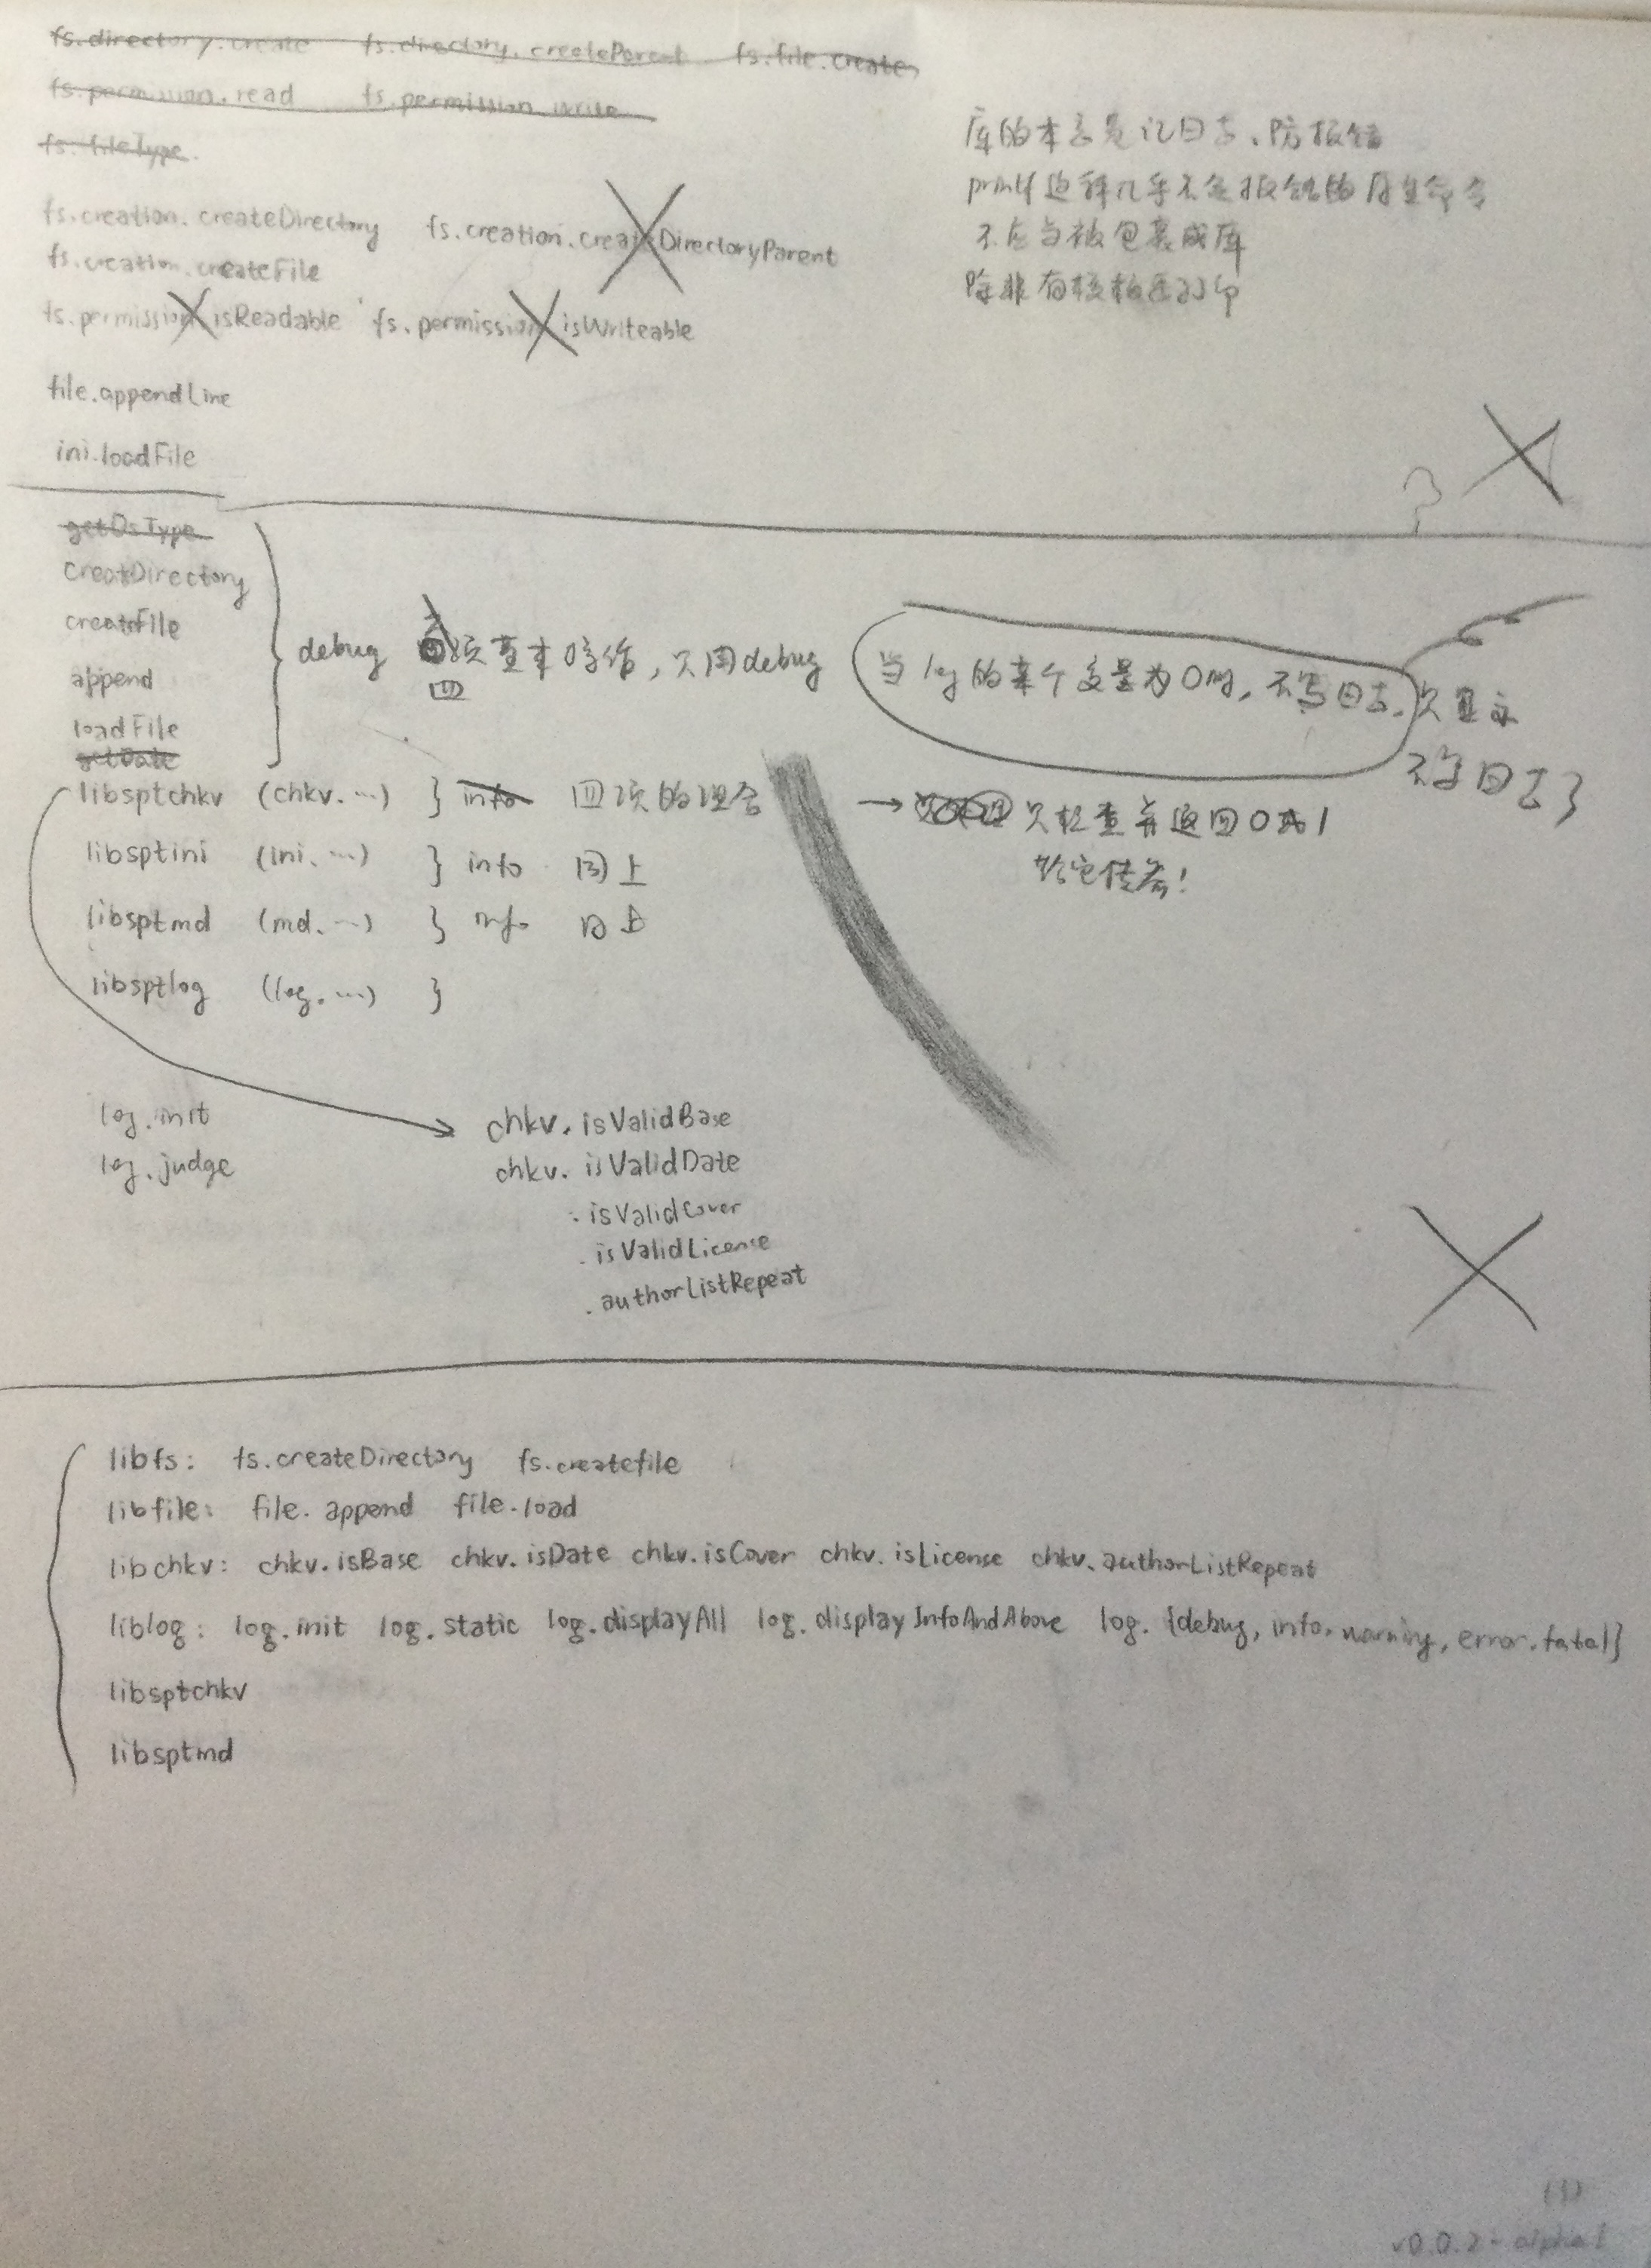 fs.directory.create fs.directory.createParent fs.file.create
fs.permission.read fs.permission.write
fs.fileType
库的本意是记日志、防报错
printf这种几乎不会报错的原生命令
不应当被包裹成库
除非有
fs.creation.createDirectory fs.creation.createDirectoryParent
fs.creation.createFile
fs.permission isReadable fs.permission isWriteable
file.appendLine
ini.loadFile
?
getOsType
createDirectory
createFile
append
loadFile
getDate
debug 四项基本操作，只用debug
当log的某个变量为0时，不写日志，只显示
不写日志}
libsptchkv (chkv.…) } info 四项的组合
→ 只检查并返回0和1
给它传参！
libsptini (ini.…) } info 同上
libsptmd (md.…) } info 同上
libsptlog (log.…) }
log.init
log.judge
chkv.isValidBase
chkv.isValidDate
.isValidCover
.isValidLicense
.authorListRepeat
libfs: fs.createDirectory fs.createfile
libfile: file.append file.load
libchkv: chkv.isBase chkv.isDate chkv.isCover chkv.isLicense chkv.authorListRepeat
liblog: log.init log.static log.displayAll log.displayInfoAndAbove log.{debug, info, warning, error.fatal}
libsptchkv
libsptmd
(1)
v0.0.2-alpha1